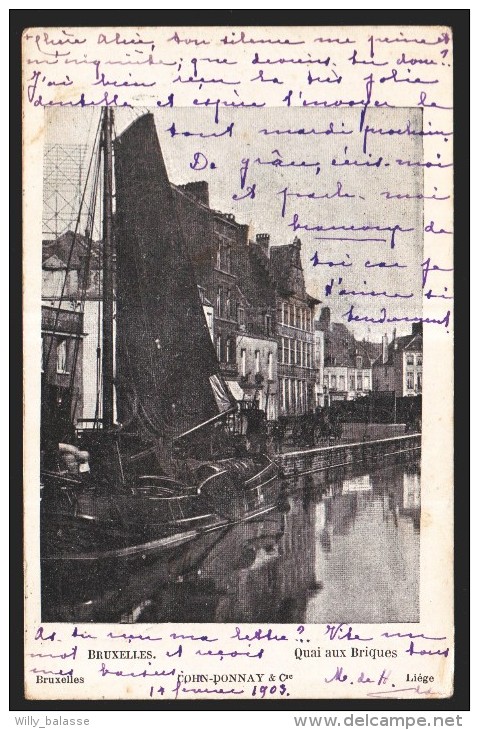 chère Alice, ton silence me peine et
m'inquiète, que deviens-tu donc??
J'ai bien reçu ta très jolie
dentelle et espère t'envoyer le
tout mardi prochain
De grâce, écris-moi
et parle-moi
beaucoup de
toi car je
t'aime si
tendrement
As-tu reçu ma lettre? Vite un
mot et reçois tous
mes baisers
BRUXELLES. Quai aux Briques
Bruxelles COHN-DONNAY & Cie Liége
14 février 1903. M. de H.
Willy_balasse
http://www.delcampe.net